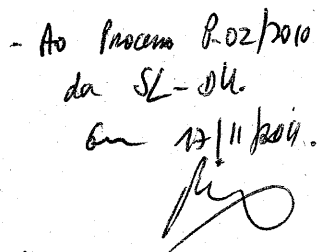 - Ao Processo P-02/2010
da SL-DU.
Em 17/11/2011.